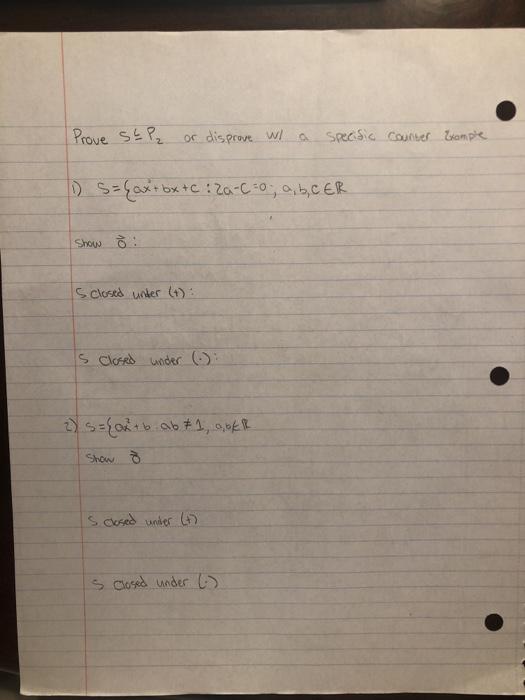 Prove S ≤ P₂ or disprove w/ a specific counter Example
1) S={ax²+bx+c : 2a-c=0; a,b,c ∈ ℝ
Show 0⃗ :
S closed under (+):
S closed under (·):
2) S={ax²+b : ab ≠ 1, a,b ∈ ℝ
Show 0⃗
S closed under (+)
S closed under (·)